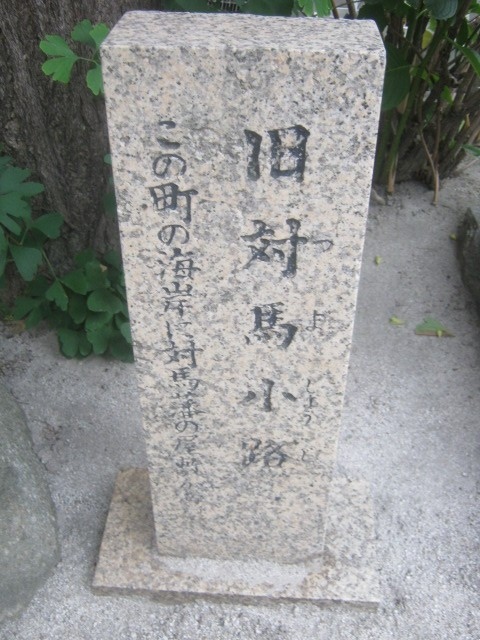 つ ま しょうじ
旧対馬小路
この町の海岸に対馬藩の屋敷